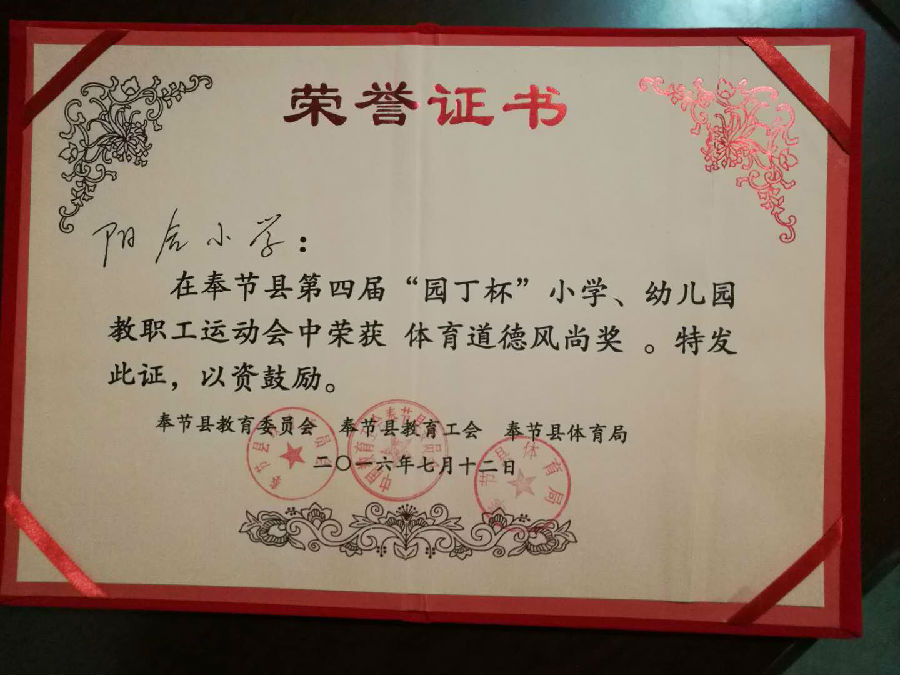 荣誉证书
阳合小学：
在奉节县第四届“园丁杯”小学、幼儿园
教职工运动会中荣获 体育道德风尚奖 。特发
此证，以资鼓励。
奉节县教育委员会 奉节县教育工会 奉节县体育局
二〇一六年七月十二日